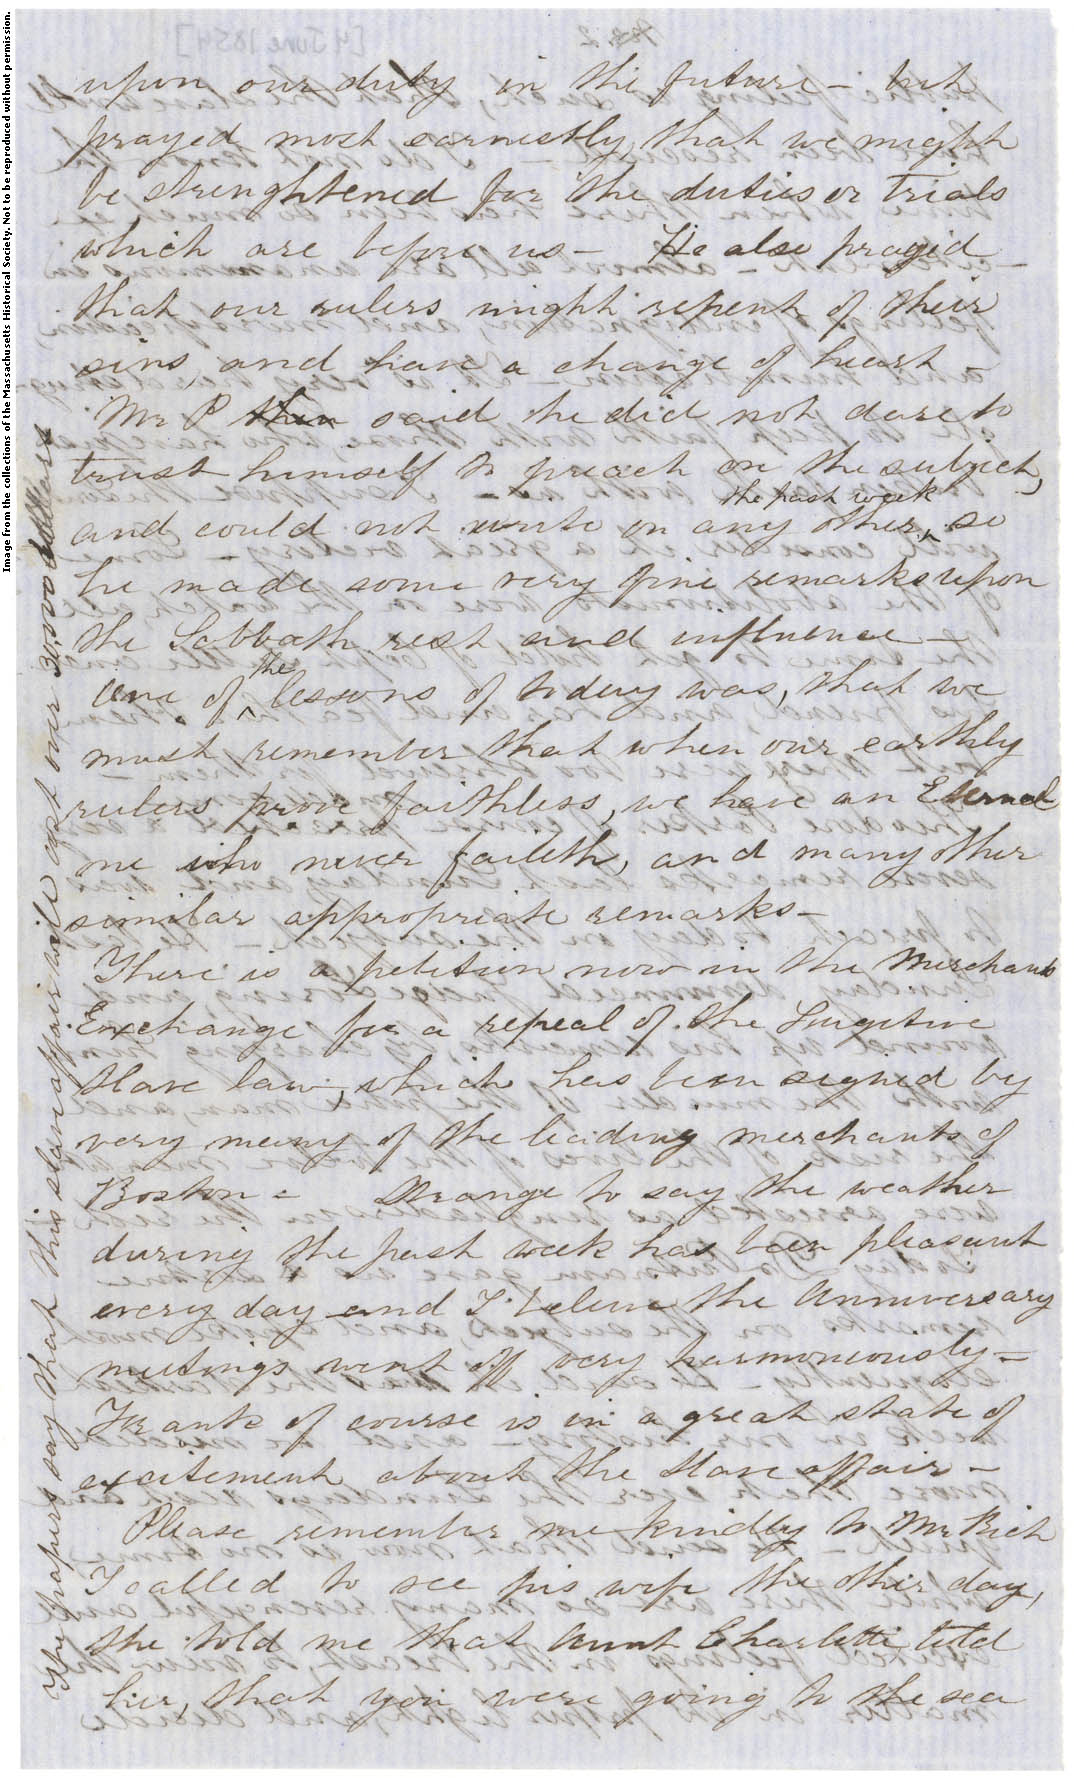 [4 June 1854]
2
upon our duty in the future - but
prayed most earnestly, that we might
be strenghtened for the duties or trials
which are before us - He also prayed
that our rulers might repent of their
sins, and have a change of heart -
Mr P then said he did not dare to
trust himself to preach on the subject,
and could not write on any other ^ the past week, so
he made some very fine remarks upon
the Sabbath rest and influence -
One of ^ the lessons of today was, that we
must remember that when our earthly
rulers prove faithless, we have an Eternal
one who never faileth, and many other
similar appropriate remarks -
There is a petition now in the Merchants
Exchange for a repeal of the Fugitive
Slave law, which has been signed by
very many of the leading merchants of
Boston - Strange to say the weather
during the past week has been pleasant
every day and I believe the Anniversary
meetings went off very harmoniously -
Frank of course is in a great state of
excitement about the Slave affair -
Please remember me kindly to Mr Rich
I called to see his wife the other day,
she told me that Aunt Charlotte told
her, that you were going to the sea
The papers say that this slave affair will cost over 30,000 dollars
Image from the collections of the Massachusetts Historical Society. Not to be reproduced without permission.